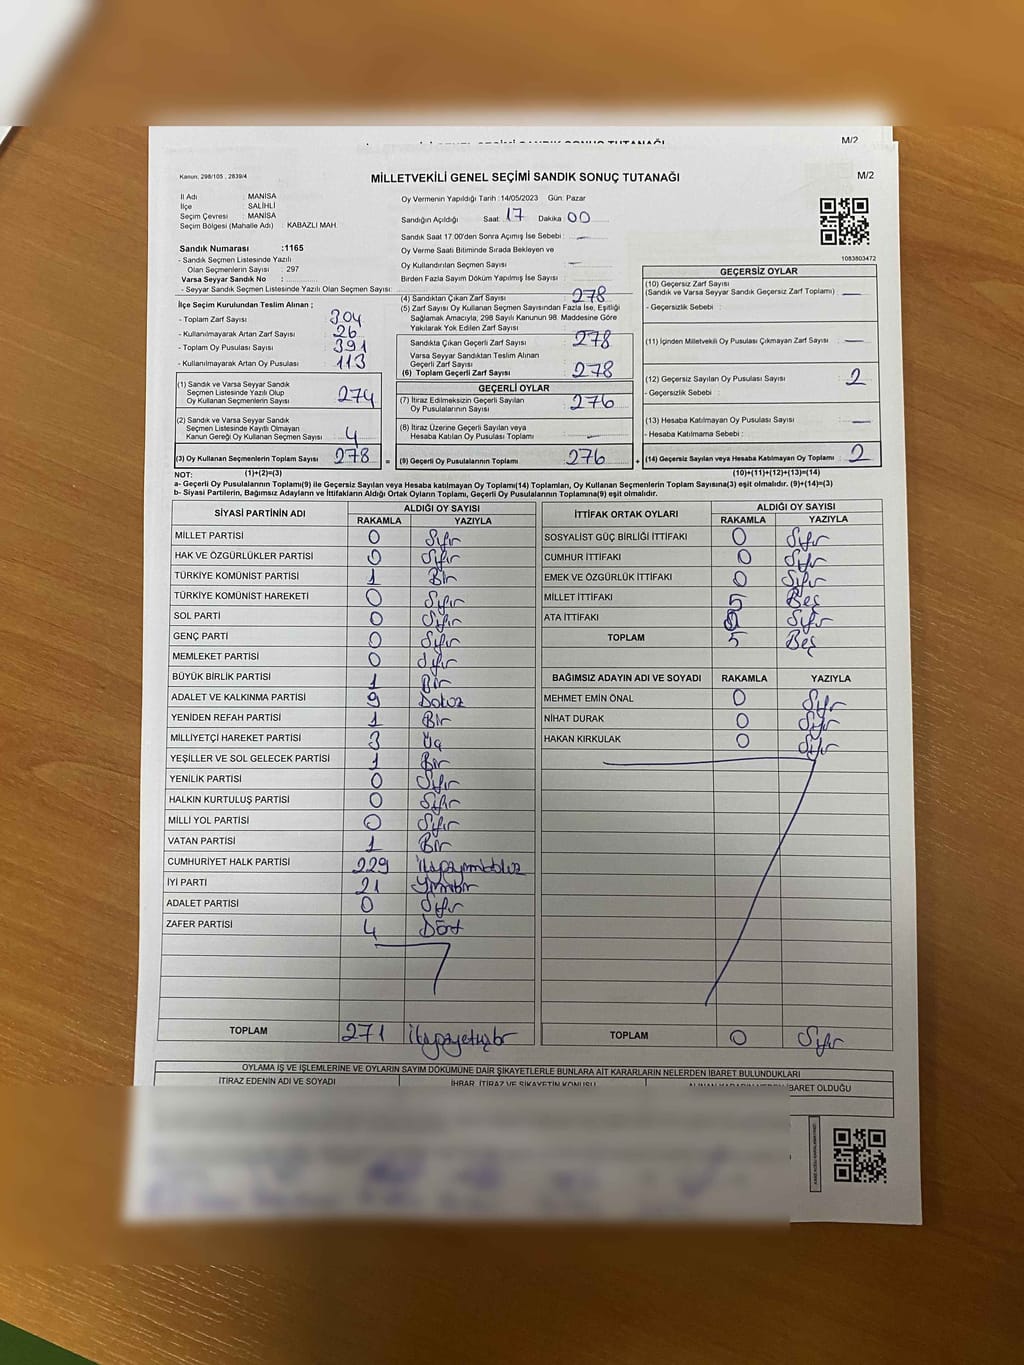 M/2
Kanun; 298/105 , 2839/4
MİLLETVEKİLİ GENEL SEÇİMİ SANDIK SONUÇ TUTANAĞI
M/2
İl Adı : MANİSA
İlçe : SALİHLİ
Seçim Çevresi : MANİSA
Seçim Bölgesi (Mahalle Adı) : KABAZLI MAH.
Sandık Numarası :1165
- Sandık Seçmen Listesinde Yazılı
Olan Seçmenlerin Sayısı : 297
Varsa Seyyar Sandık No :
- Seyyar Sandık Seçmen Listesinde Yazılı Olan Seçmen Sayısı:
Oy Vermenin Yapıldığı Tarih :14/05/2023 Gün: Pazar
Sandığın Açıldığı Saat: 17 Dakika 00
Sandık Saat 17.00'den Sonra Açımış İse Sebebi : —
Oy Verme Saati Bitiminde Sırada Bekleyen ve
Oy Kullandırılan Seçmen Sayısı : —
Birden Fazla Sayım Döküm Yapılmış İse Sayısı :
1083803472
İlçe Seçim Kurulundan Teslim Alınan ;
- Toplam Zarf Sayısı : 304
- Kullanılmayarak Artan Zarf Sayısı : 26
- Toplam Oy Pusulası Sayısı : 391
- Kullanılmayarak Artan Oy Pusulası : 113
(1) Sandık ve Varsa Seyyar Sandık
Seçmen Listesinde Yazılı Olup
Oy Kullanan Seçmenlerin Sayısı : 274
(2) Sandık ve Varsa Seyyar Sandık
Seçmen Listesinde Kayıtlı Olmayan
Kanun Gereği Oy Kullanan Seçmen Sayısı : 4
(3) Oy Kullanan Seçmenlerin Toplam Sayısı : 278 =
(4) Sandıktan Çıkan Zarf Sayısı : 278
(5) Zarf Sayısı Oy Kullanan Seçmen Sayısından Fazla İse, Eşitliği
Sağlamak Amacıyla; 298 Sayılı Kanunun 98. Maddesine Göre
Yakılarak Yok Edilen Zarf Sayısı :
Sandıkta Çıkan Geçerli Zarf Sayısı : 278
Varsa Seyyar Sandıktan Teslim Alınan
Geçerli Zarf Sayısı :
(6) Toplam Geçerli Zarf Sayısı : 278
GEÇERLİ OYLAR
(7) İtiraz Edilmeksizin Geçerli Sayılan
Oy Pusulalarının Sayısı : 276
(8) İtiraz Üzerine Geçerli Sayılan veya
Hesaba Katılan Oy Pusulası Toplamı : —
(9) Geçerli Oy Pusulalarının Toplamı : 276 +
GEÇERSİZ OYLAR
(10) Geçersiz Zarf Sayısı
(Sandık ve Varsa Seyyar Sandık Geçersiz Zarf Toplamı) : —
- Geçersizlik Sebebi :
(11) İçinden Milletvekili Oy Pusulası Çıkmayan Zarf Sayısı : —
(12) Geçersiz Sayılan Oy Pusulası Sayısı : 2
- Geçersizlik Sebebi :
(13) Hesaba Katılmayan Oy Pusulası Sayısı : —
- Hesaba Katılmama Sebebi :
(14) Geçersiz Sayılan veya Hesaba Katılmayan Oy Toplamı : 2
NOT: (1)+(2)=(3) (10)+(11)+(12)+(13)=(14)
a- Geçerli Oy Pusulaları Toplamı(9) ile Geçersiz Sayılan veya Hesaba katılmayan Oy Toplamı(14) Toplamları, Oy Kullanan Seçmenlerin Toplam Sayısına(3) eşit olmalıdır. (9)+(14)=(3)
b- Siyasi Partilerin, Bağımsız Adayların ve İttifakların Aldığı Ortak Oyların Toplamı, Geçerli Oy Pusulalarının Toplamına(9) eşit olmalıdır.
SİYASİ PARTİNİN ADI ALDIĞI OY SAYISI
RAKAMLA YAZIYLA
MİLLET PARTİSİ 0 Sıfır
HAK VE ÖZGÜRLÜKLER PARTİSİ 0 Sıfır
TÜRKİYE KOMÜNİST PARTİSİ 1 Bir
TÜRKİYE KOMÜNİST HAREKETİ 0 Sıfır
SOL PARTİ 0 Sıfır
GENÇ PARTİ 0 Sıfır
MEMLEKET PARTİSİ 0 Sıfır
BÜYÜK BİRLİK PARTİSİ 1 Bir
ADALET VE KALKINMA PARTİSİ 9 Dokuz
YENİDEN REFAH PARTİSİ 1 Bir
MİLLİYETÇİ HAREKET PARTİSİ 3 Üç
YEŞİLLER VE SOL GELECEK PARTİSİ 1 Bir
YENİLİK PARTİSİ 0 Sıfır
HALKIN KURTULUŞ PARTİSİ 0 Sıfır
MİLLİ YOL PARTİSİ 0 Sıfır
VATAN PARTİSİ 1 Bir
CUMHURİYET HALK PARTİSİ 229
İYİ PARTİ 21 Yirmibir
ADALET PARTİSİ 0 Sıfır
ZAFER PARTİSİ 4 Dört
TOPLAM 271
İTTİFAK ORTAK OYLARI ALDIĞI OY SAYISI
RAKAMLA YAZIYLA
SOSYALİST GÜÇ BİRLİĞİ İTTİFAKI 0 Sıfır
CUMHUR İTTİFAKI 0 Sıfır
EMEK VE ÖZGÜRLÜK İTTİFAKI 0 Sıfır
MİLLET İTTİFAKI 5 Beş
ATA İTTİFAKI 0 Sıfır
TOPLAM 5 Beş
BAĞIMSIZ ADAYIN ADI VE SOYADI RAKAMLA YAZIYLA
MEHMET EMİN ÖNAL 0 Sıfır
NİHAT DURAK 0 Sıfır
HAKAN KIRKULAK 0 Sıfır
TOPLAM 0 Sıfır
OYLAMA İŞ VE İŞLEMLERİNE VE OYLARIN SAYIM DÖKÜMÜNE DAİR ŞİKAYETLERLE BUNLARA AİT KARARLARIN NELERDEN İBARET BULUNDUKLARI
İTİRAZ EDENİN ADI VE SOYADI İHBAR, İTİRAZ VE ŞİKAYETİN KONUSU İBARET OLDUĞU